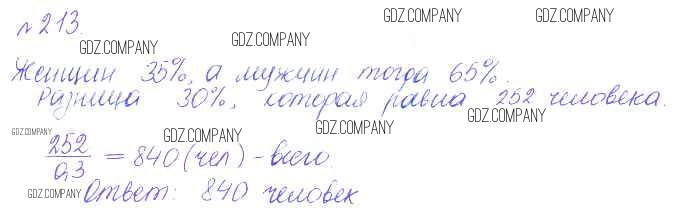 № 213.
GDZ.COMPANY GDZ.COMPANY
GDZ.COMPANY GDZ.COMPANY
Женщин 35%, а мужчин тогда 65%.
GDZ.COMPANY GDZ.COMPANY GDZ.COMPANY
Разница 30%, которая равна 252 человека.
GDZ.COMPANY GDZ.COMPANY GDZ.COMPANY GDZ.COMPANY
252/0,3 = 840 (чел) - всего.
GDZ.COMPANY GDZ.COMPANY GDZ.COMPANY
Ответ: 840 человек